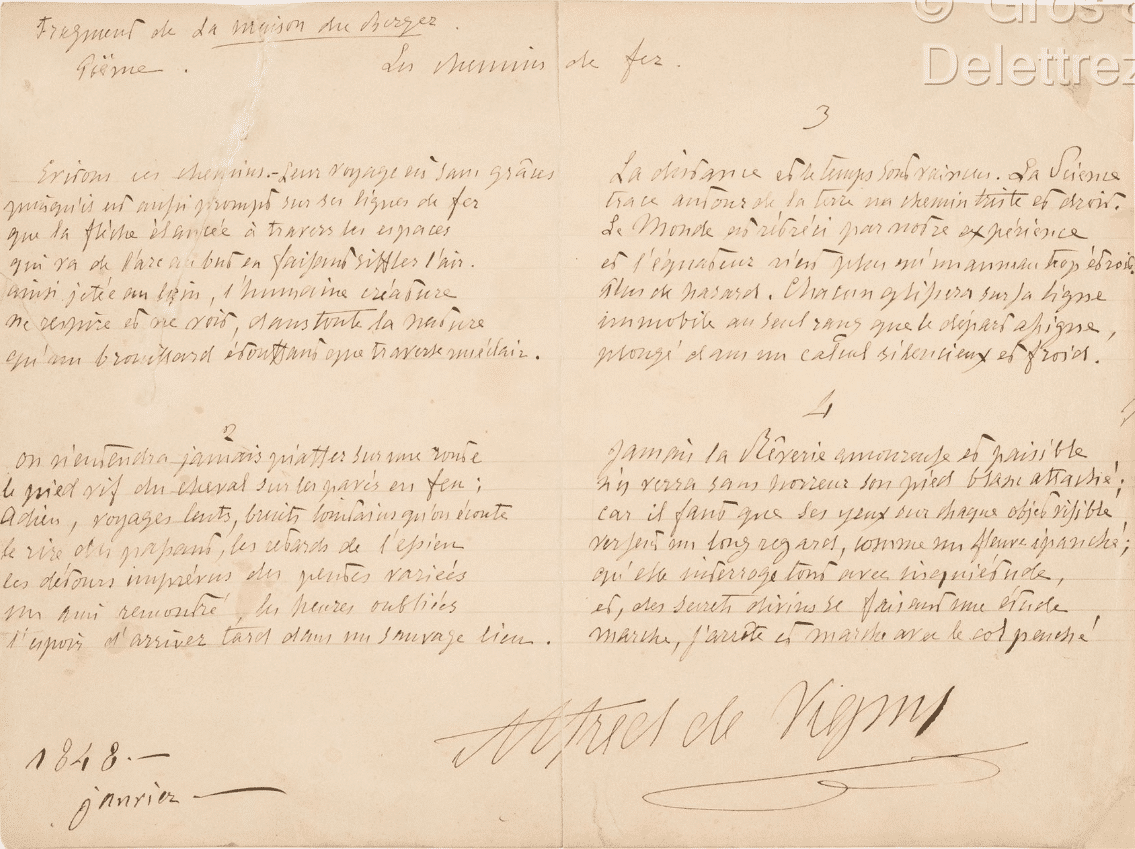 Fragment de La maison du Berger.
Poëme.
Les chemins de fer.
Evitons ces chemins. - Leur voyage est sans grâces
puisqu'il est aussi prompt sur ses lignes de fer
que la flèche élancée à travers les espaces
qui va de l'arc au but en faisant siffler l'air.
ainsi jetée au loin, l'humaine créature
ne respire et ne voit, dans toute la nature
qu'un brouillard étouffant que traverse un éclair.
2
on n'entendra jamais piaffer sur une route
le pied vif du cheval sur les pavés en feu ;
Adieu, voyages lents, bruits lointains qu'on écoute
le rire du passant, les retards de l'essieu
les détours imprévus des pentes variées
un ami rencontré, les heures oubliées
l'espoir d'arriver tard dans un sauvage lieu.
3
La distance et le temps sont vaincus. La Science
trace autour de la terre un chemin triste et droit.
Le Monde est rétréci par notre expérience
et l'équateur n'est plus qu'un anneau trop étroit.
Plus de hazard. Chacun glissera sur sa ligne
immobile au seul rang que le départ assigne,
plongé dans un calcul silencieux et froid.
4
jamais la Rêverie amoureuse et paisible
n'y verra sans horreur son pied blanc attaché ;
car il faut que ses yeux sur chaque objet visible
versent un long regard, comme un fleuve épanché ;
qu'elle interroge tout avec inquiétude,
et, des secrets divins se faisant une étude
marche, s'arrête et marche avec le col penché
Alfred de Vigny
1848. —
janvier —
© Gros &
Delettrez